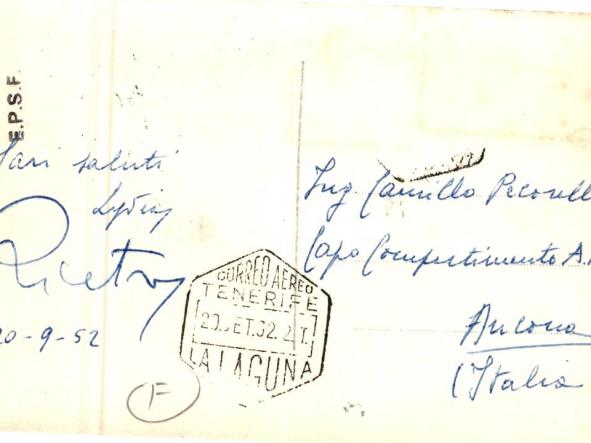 E.P.S.F.
Cari saluti
Lydia
20-9-52
CORREO AEREO
TENERIFE
LA LAGUNA
F
Ing Camillo
Capo Compartimento A.
Ancona
(Italia